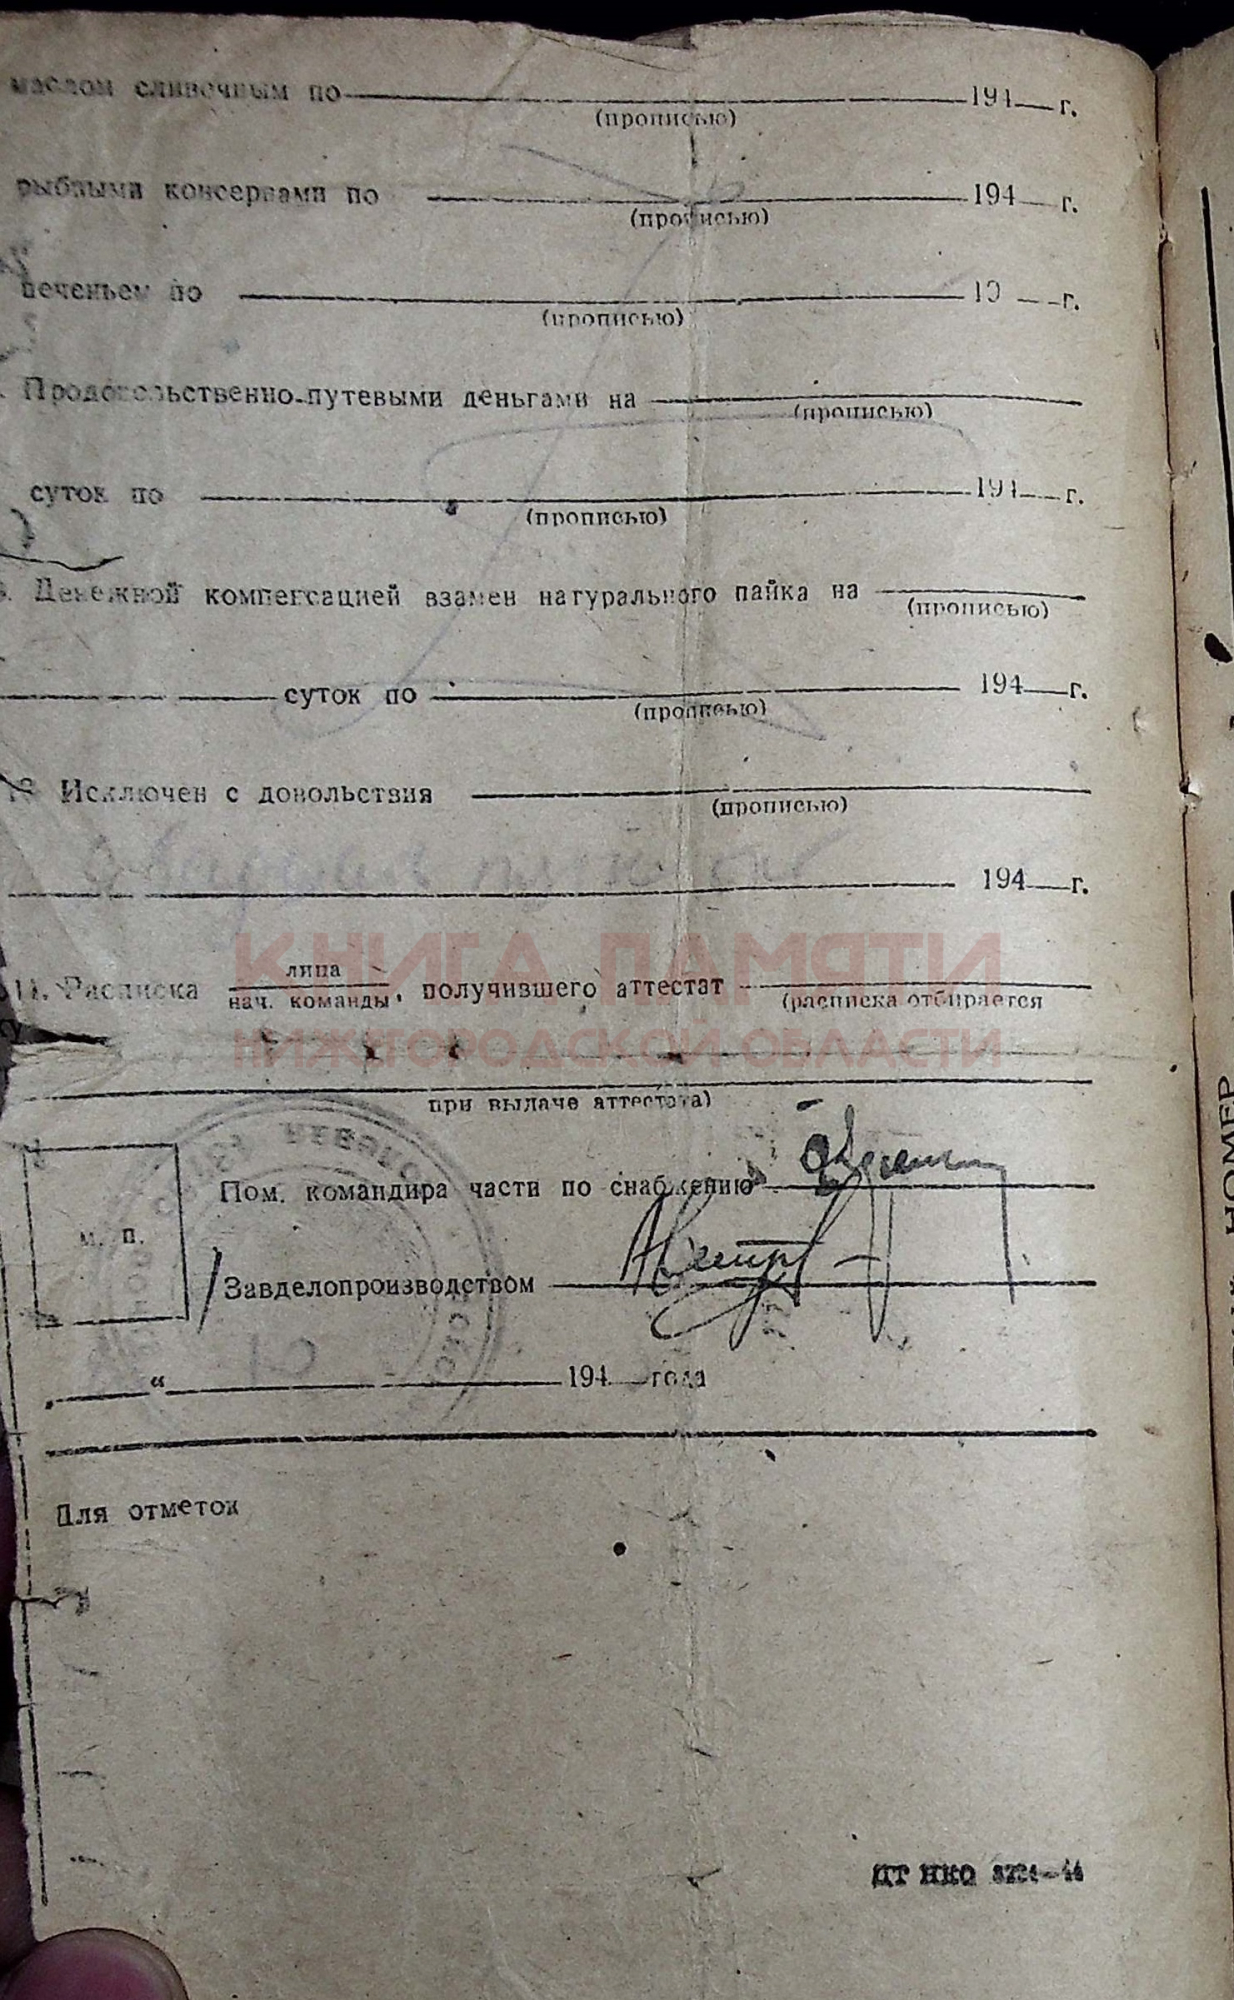 маслом сливочным по 194 г.
(прописью)
рыбными консервами по 194 г.
(прописью)
печеньем по 19 г.
(прописью)
Продовольственно-путевыми деньгами на
(прописью)
суток по 194 г.
(прописью)
Денежной компенсацией взамен натурального пайка на
(прописью)
суток по 194 г.
(прописью)
Исключен с довольствия
(прописью)
194 г.
КНИГА ПАМЯТИ
НИЖЕГОРОДСКОЙ ОБЛАСТИ
11. Расписка лица
нач. команды, получившего аттестат
(расписка отбирается
при выдаче аттестата)
Пом. командира части по снабжению
м. п.
Завделопроизводством
" 194 года
Для отметок
ДТ НКО
НОМЕР